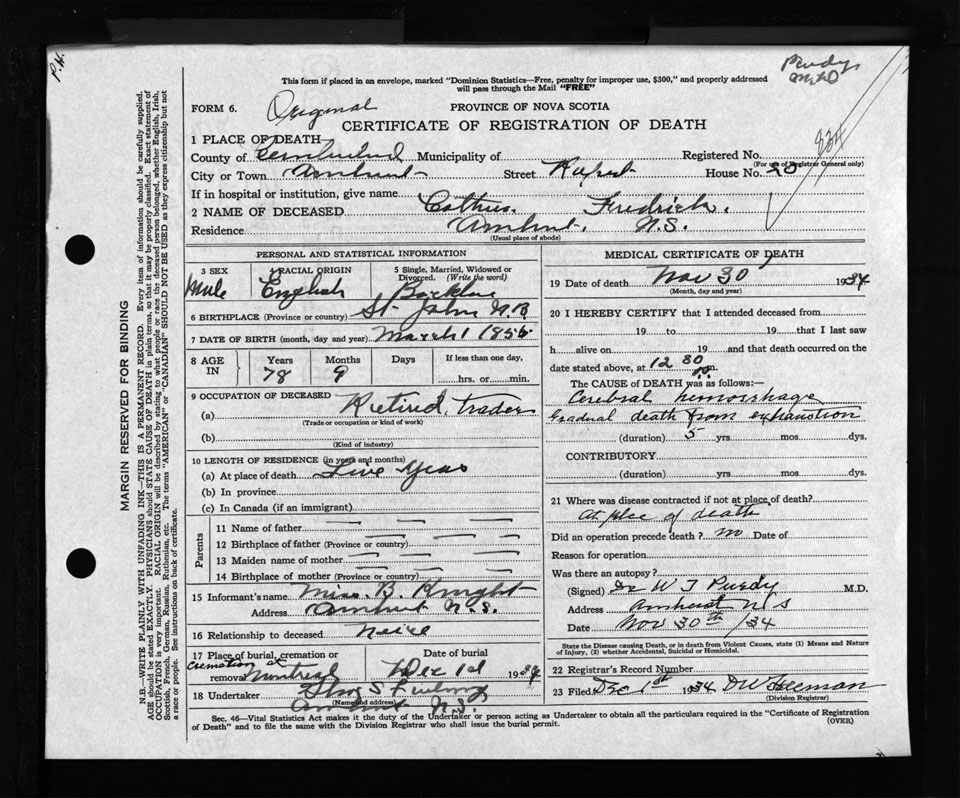 P.H.
Purdy
This form if placed in an envelope, marked "Dominion Statistics—Free, penalty for improper use, $300," and properly addressed
will pass through the Mail "FREE"
FORM 6. Original PROVINCE OF NOVA SCOTIA
CERTIFICATE OF REGISTRATION OF DEATH
834
1 PLACE OF DEATH
County of Cumberland Municipality of Registered No.
(For use of Registrar General only)
City or Town Amherst Street Rupert House No. 20
If in hospital or institution, give name
2 NAME OF DECEASED Fredrick.
Residence Amherst, N.S.
(Usual place of abode)
PERSONAL AND STATISTICAL INFORMATION
3 SEX 4 RACIAL ORIGIN 5 Single, Married, Widowed or
Divorced. (Write the word)
Male English
6 BIRTHPLACE (Province or country) St. John N.B.
7 DATE OF BIRTH (month, day and year) March 1 1856
8 AGE IN Years Months Days If less than one day,
78 9 hrs. or min.
9 OCCUPATION OF DECEASED
(a) Retired, Trader
(Trade or occupation or kind of work)
(b)
(Kind of industry)
10 LENGTH OF RESIDENCE (in years and months)
(a) At place of death Five years
(b) In province
(c) In Canada (if an immigrant)
Parents
11 Name of father
12 Birthplace of father (Province or country)
13 Maiden name of mother
14 Birthplace of mother (Province or country)
15 Informant's name Miss. B. Knight
Address Amherst N.S.
16 Relationship to deceased Neice
17 Place of burial, cremation or Date of burial
cremation at
removal Montreal Dec 1st 1934
18 Undertaker
(Name and address)
Amherst N.S.
MEDICAL CERTIFICATE OF DEATH
19 Date of death Nov 30 1934
(Month, day and year)
20 I HEREBY CERTIFY that I attended deceased from
19 to 19 that I last saw
h alive on 19 and that death occurred on the
date stated above, at 12 30 p.m.
The CAUSE of DEATH was as follows:—
Cerebral hemorrhage
Gradual death from exhaustion
(duration) 5 yrs. mos. dys.
CONTRIBUTORY
(duration) yrs. mos. dys.
21 Where was disease contracted if not at place of death?
At place of death
Did an operation precede death? no Date of
Reason for operation
Was there an autopsy?
(Signed) Dr W T Purdy M.D.
Address Amherst N S
Date Nov 30th /34
State the Disease causing Death, or in death from Violent Causes, state (1) Means and Nature
of Injury, (2) whether Accidental, Suicidal or Homicidal.
22 Registrar's Record Number
23 Filed Dec 1st 1934 D W Freeman
(Division Registrar)
Sec. 46—Vital Statistics Act makes it the duty of the Undertaker or person acting as Undertaker to obtain all the particulars required in the "Certificate of Registration
of Death" and to file the same with the Division Registrar who shall issue the burial permit. (OVER)
MARGIN RESERVED FOR BINDING
N.B.—WRITE PLAINLY WITH UNFADING INK—THIS IS A PERMANENT RECORD. Every item of information should be carefully supplied.
AGE should be stated EXACTLY. PHYSICIANS should STATE CAUSE OF DEATH in plain terms, so that it may be properly classified. Exact statement of
OCCUPATION is very important. RACIAL ORIGIN will be described by stating to what people or race the deceased person belonged, whether English, Irish,
Scottish, French, German, Russian, Ruthenian, etc. The terms "AMERICAN" or "CANADIAN" SHOULD NOT BE USED as they express citizenship but not
a race or people. See instructions on back of certificate.